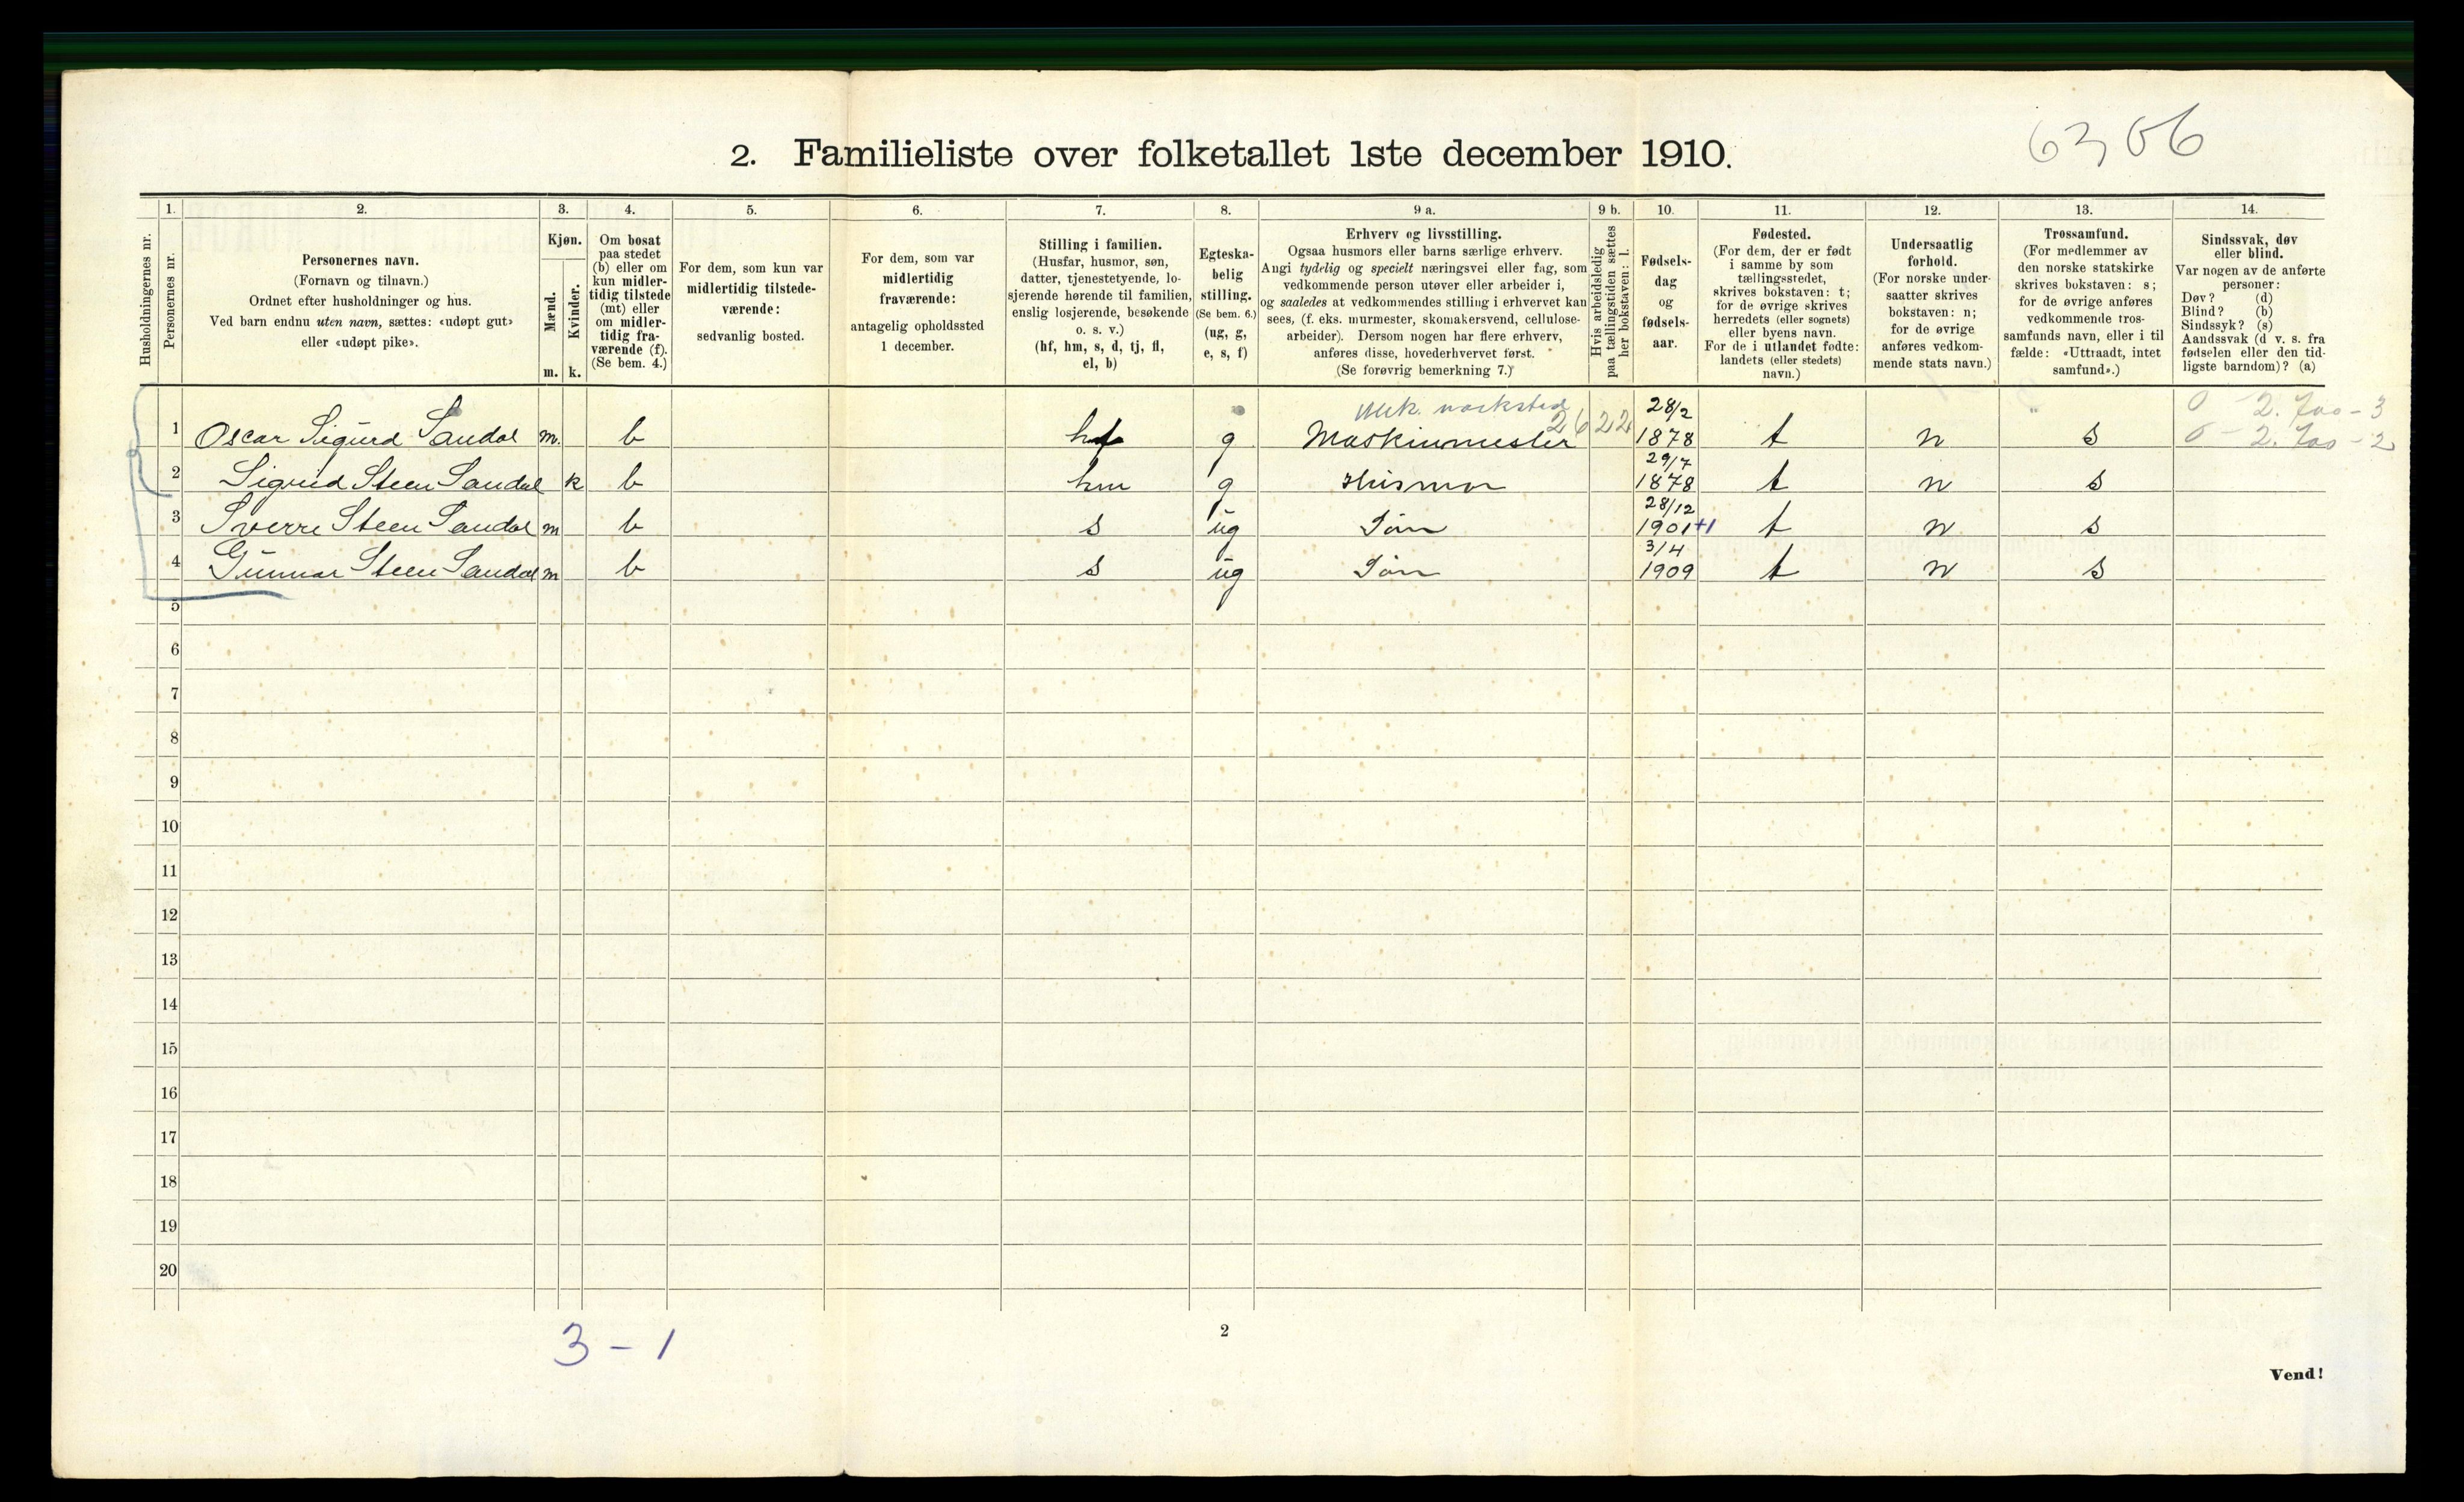 6306
2. Familieliste over folketallet 1ste december 1910.
Husholdningernes nr.
1.
Personernes nr.
2.
Personernes navn.
(Fornavn og tilnavn.)
Ordnet efter husholdninger og hus.
Ved barn endnu uten navn, sættes: «udøpt gut»
eller «udøpt pike».
3.
Kjøn.
Mænd.
Kvinder.
m. k.
4.
Om bosat
paa stedet
(b) eller om
kun midler-
tidig tilstede
(mt) eller
om midler-
tidig fra-
værende (f).
(Se bem. 4.)
5.
For dem, som kun var
midlertidig tilstede-
værende:
sedvanlig bosted.
6.
For dem, som var
midlertidig
fraværende:
antagelig opholdssted
1 december.
7.
Stilling i familien.
(Husfar, husmor, søn,
datter, tjenestetyende, lo-
sjerende hørende til familien,
enslig losjerende, besøkende
o. s. v.)
(hf, hm, s, d, tj, fl,
el, b)
8.
Egteska-
belig
stilling.
(Se bem. 6.)
(ug, g,
e, s, f)
9 a.
Erhverv og livsstilling.
Ogsaa husmors eller barns særlige erhverv.
Angi tydelig og specielt næringsvei eller fag, som
vedkommende person utøver eller arbeider i,
og saaledes at vedkommendes stilling i erhvervet kan
sees, (f. eks. murmester, skomakersvend, cellulose-
arbeider). Dersom nogen har flere erhverv,
anføres disse, hovederhvervet først.
(Se forøvrig bemerkning 7.)
9 b.
Hvis arbeidsledig
paa tællingstiden sættes
her bokstaven: l.
10.
Fødsels-
dag
og
fødsels-
aar.
11.
Fødested.
(For dem, der er født
i samme by som
tællingsstedet,
skrives bokstaven: t;
for de øvrige skrives
herredets (eller sognets)
eller byens navn.
For de i utlandet fødte:
landets (eller stedets)
navn.)
12.
Undersaatlig
forhold.
(For norske under-
saatter skrives
bokstaven: n;
for de øvrige
anføres vedkom-
mende stats navn.)
13.
Trossamfund.
(For medlemmer av
den norske statskirke
skrives bokstaven: s;
for de øvrige anføres
vedkommende tros-
samfunds navn, eller i til
fælde: «Uttraadt, intet
samfund».)
14.
Sindssvak, døv
eller blind.
Var nogen av de anførte
personer:
Døv? (d)
Blind? (b)
Sindssyk? (s)
Aandssvak (d v. s. fra
fødselen eller den tid-
ligste barndom)? (a)
Mek. verksted 28/2
1 Oscar Sigurd Sandal m. b hf g Maskinmester 2622 1878 t n s
29/7
2 Sigrid Steen Sandal k b hm g Husmor 1878 t n s
28/12
3 Sverre Steen Sandal m b s ug Søn 1901+1 t n s
3/4
4 Gunnar Steen Sandal m b s ug Søn 1909 t n s
5
6
7
8
9
10
11
12
13
14
15
16
17
18
19
20
3 - 1
2
Vend!